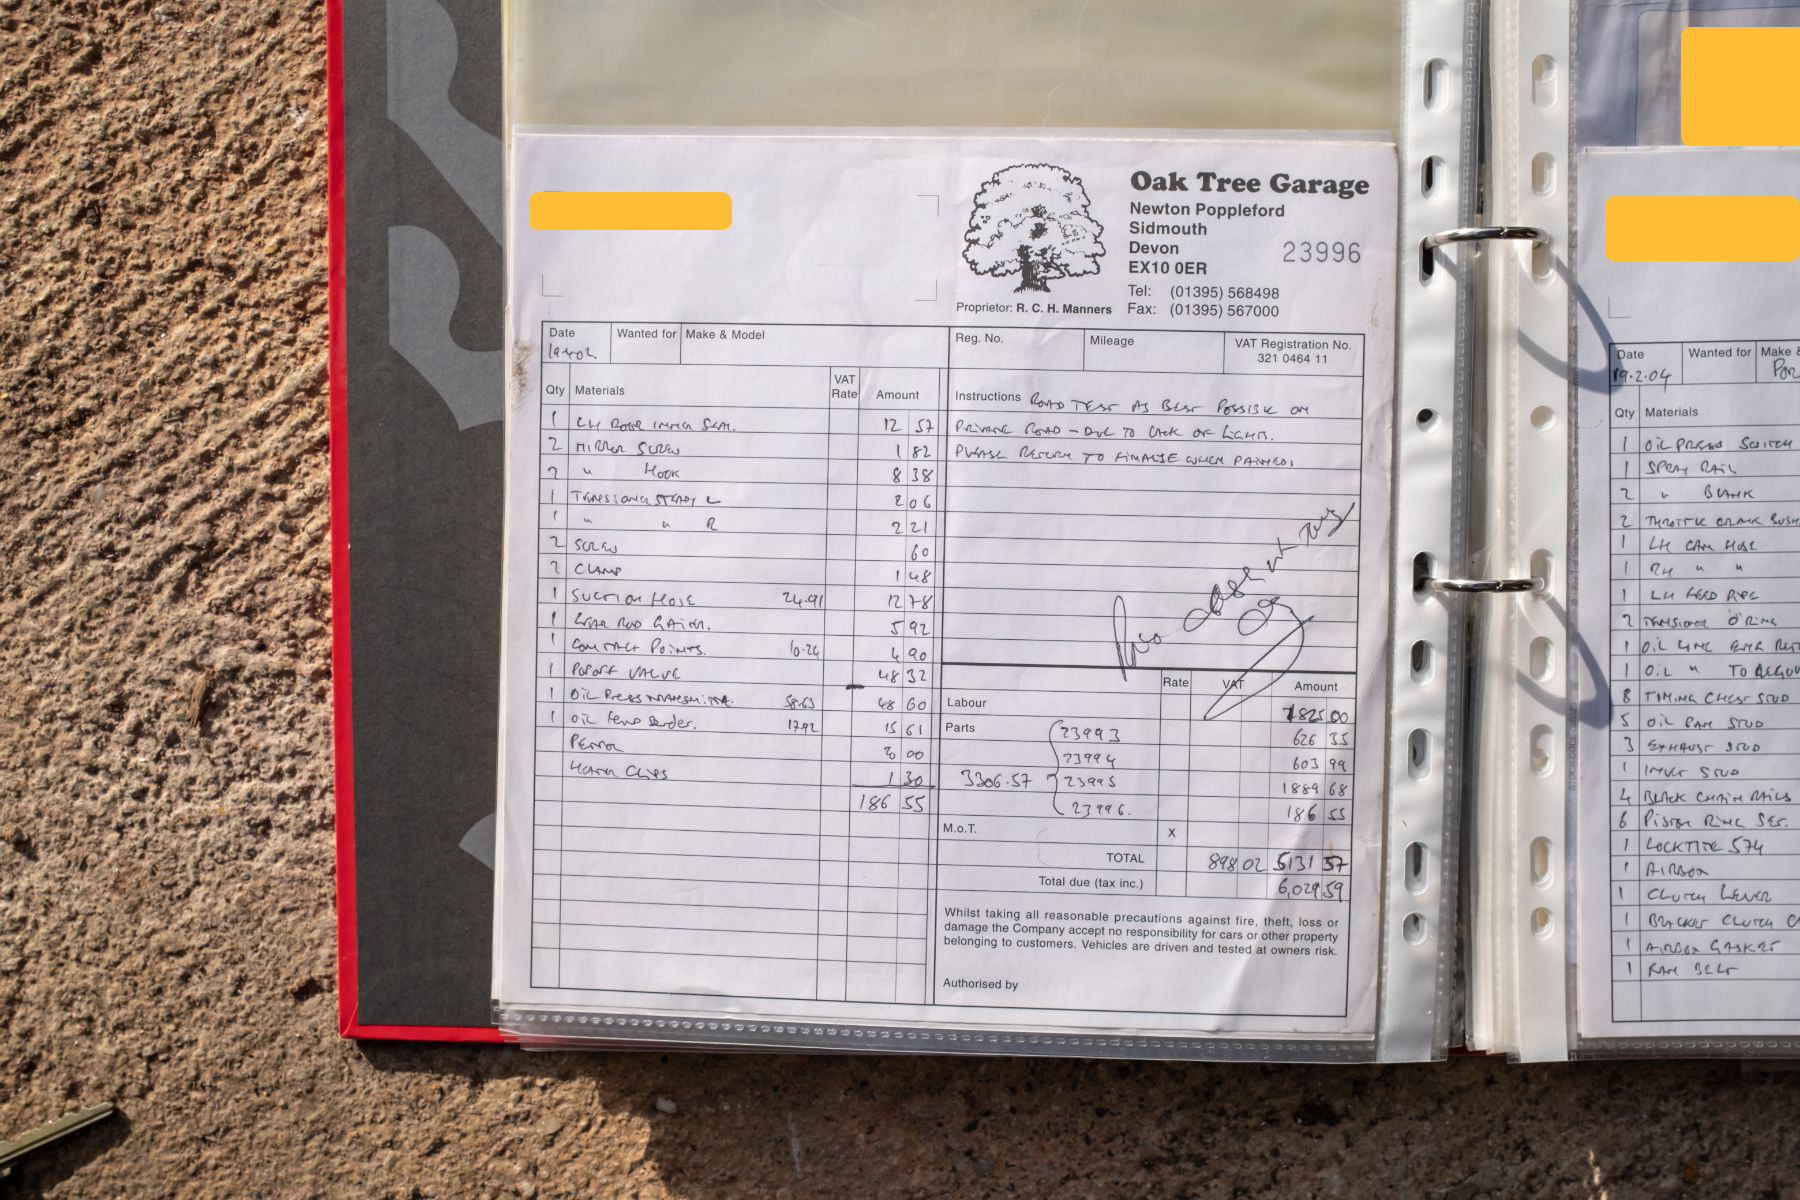 Oak Tree Garage
Newton Poppleford
Sidmouth
Devon
EX10 0ER
23996
Tel: (01395) 568498
Fax: (01395) 567000
Proprietor: R. C. H. Manners
Date
Wanted for
Make & Model
Reg. No.
Mileage
VAT Registration No.
321 0464 11
Qty Materials VAT Rate Amount
1 LH DOOR INNER SEAL. 12 57
2 MIRROR SCREW 1 82
2 " HOOK 8 38
1 TENSIONER STEADY L 2 06
1 " " R 2 21
2 SCREW 60
2 CLAMP 1 48
1 SUCTION HOSE 24.91 12 78
1 GEAR ROD GAITER. 5 92
1 CONTACT POINTS. 10.24 4 90
1 POPOFF VALVE 48 32
1 OIL PRESS TRANSMITTER. 58.63 48 60
1 OIL TEMP SENDER. 17.92 15 61
PETROL 00
CLIPS 1 30
186 55
Instructions ROAD TEST AS BEST POSSIBLE ON
PRIVATE ROAD - DUE TO LACK OF LIGHTS.
PLEASE RETURN TO FINALISE WHEN PAINTED.
Rate VAT Amount
Labour 1825 00
Parts 23993 626 35
23994 603 99
3306.57 23995 1889 68
23996. 186 55
M.o.T. X
TOTAL 898 02 5131 57
Total due (tax inc.) 6,029 59
Whilst taking all reasonable precautions against fire, theft, loss or
damage the Company accept no responsibility for cars or other property
belonging to customers. Vehicles are driven and tested at owners risk.
Authorised by
Date
19.2.04
Wanted for
Make &
POR
Qty Materials
1 OIL PRESS SWITCH
1 SPRAY RAIL
2 " BLANK
2 THROTTLE CRANK BUSH
1 LH CAM HOSE
1 RH " "
1 LH FEED PIPE
2 TENSIONER O'RING
1 OIL LINE
1 OIL " TO
8 TIMING CHEST STUD
5 OIL PAN STUD
3 EXHAUST STUD
1 INLET STUD
4 BLACK CHAIN RAILS
6 PISTON RING SET.
1 LOCKTITE 574
1 AIRBOX
1 CLUTCH LEVER
1 BRACKET CLUTCH C
1 AIRBOX GASKET
1 FAN BELT